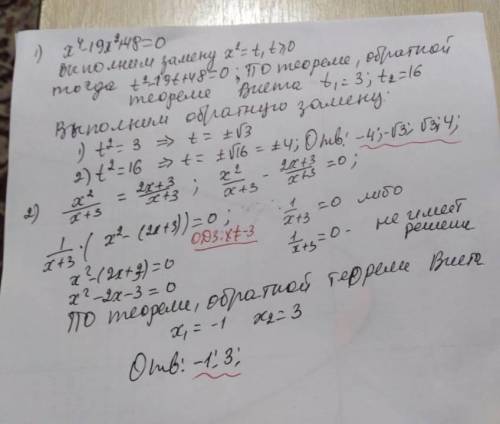 1) x⁴-19x²+48=0
Выполним замену x²=t, t≥0
тогда t²-19t+48=0; По теореме, обратной
теореме Виета t₁=3; t₂=16
Выполним обратную замену:
1) t²=3 ⇒ t=±√3
2) t²=16 ⇒ t=±√16=±4; Отв: -4;-√3; √3;4;
2) x²/x+3 = 2x+3/x+3 ; x²/x+3 - 2x+3/x+3 =0;
1/x+3 · (x²-(2x+3))=0; 1/x+3 =0 либо
ОДЗ: x≠-3 1/x+3 =0 - не имеет
решени
x²-(2x+3)=0
x²-2x-3=0
По теореме, обратной теореме Виета
x₁=-1 x₂=3
Отв: -1; 3;